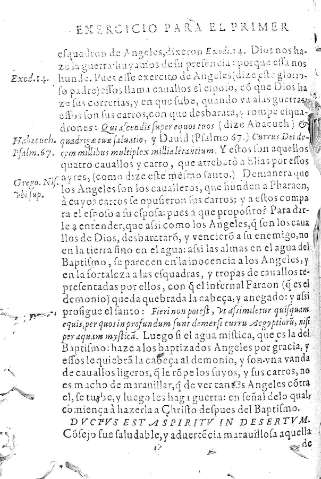 EXERCICIO PARA EL PRIMER
esquadron de Angeles, dixeron Exod. 14. Dios nos ha-
ze la guerra huyamos de su presencia: porque essa nos
Exod. 14. hunde. Pues este exercito de Angeles (dize este glorio-
so padre) essos llam a cauallos el esposo, có que Dios ha
ze sus correrias, y en que sube, quando va a las guerras:
essos son sus carros, con que desbarata, y rompe esqua-
drones: Qui ascendis super equos tuos (dize Abacuch) &
Habacuch. quadrigæ tuæ saluatio, y Dauid (Psalm. 67.) Currus Dei de-
Psalm. 67. cem millibus multiplex millia lætantium. Y estos son aquellos
quatro cauallos y carro, que arrebató a Elias por essos
Grego. Nis. ayres, (como dize este mesmo santo.) De manera que
vbi sup. los Angeles son los caualleros, que hunden a Pharaon,
à cuyos carros se opusieron sus carros; y a estos compa
ra el esposo a su esposa: pues a que proposito? Para dar-
le a entender, que assi como los Angeles, q̃ son los caua
llos de Dios, desbarataró, y vencieró a su enemigo, no
en la tierra sino en el agua: assi las almas en el agua del
Baptismo, se parecen en la inocencia a los Angeles; y
en la fortaleza a las esquadras, y tropas de cauallos re-
presentadas por ellos, con q̃ el infernal Faraon (q̃ es el
demonio) queda quebrada la cabeça, y anegado: y assi
prosigue el santo: Fieri non potest, vt assimiletur quisquam
equis, per quos in profundum sunt demersi currus Aegyptiorũ, nisi
per aquam mysticã. Luego si el agua mistica, que es la del
Baptismo: haze a los baptizados Angeles por gracia, y
essos le quiebrã la cabeça al demonio, y son vna vanda
de cauallos ligeros, q̃ le rópe los suyos, y sus carros, no
es macho de marauillar, q̃ de ver tantos Angeles cótra
el, se turbe, y luego les haga guerra: en señal de lo qual
comiença à hazerla a Christo despues del Baptismo.
DVCTVS EST A SPIRITV IN DESERTVM.
Cósejo fue saludable, y aduertécia marauillosa aquella
de